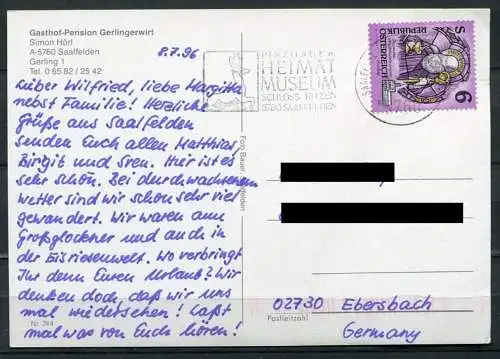 Gasthof-Pension Gerlingerwirt
Simon Hörl
A-5760 Saalfelden
Gerling 1
Tel. 0 65 82 / 25 42
8.7.96
Lieber Wilfried, liebe Margitta
nebst Familie! Herzliche
Grüße aus Saalfelden
senden Euch allen Matthias,
Birgit und Sven. Hier ist es
sehr schön. Bei durchwachsenem
Wetter sind wir schon sehr viel
gewandert. Wir waren am
Großglockner und auch in
der Eisriesenwelt. Wo verbringt
Ihr denn Euren Urlaub? Wir
denken doch, daß wir uns
mal wiedersehen! Laßt
mal was von Euch hören!
Nr. 744
Foto Bauer, Saalfelden
PINZGAUER
HEIMAT
MUSEUM
SCHLOSS RITZEN
5760 SAALFELDEN
REPUBLIK
ÖSTERREICH
S 6
02730 Ebersbach
Postleitzahl
Germany